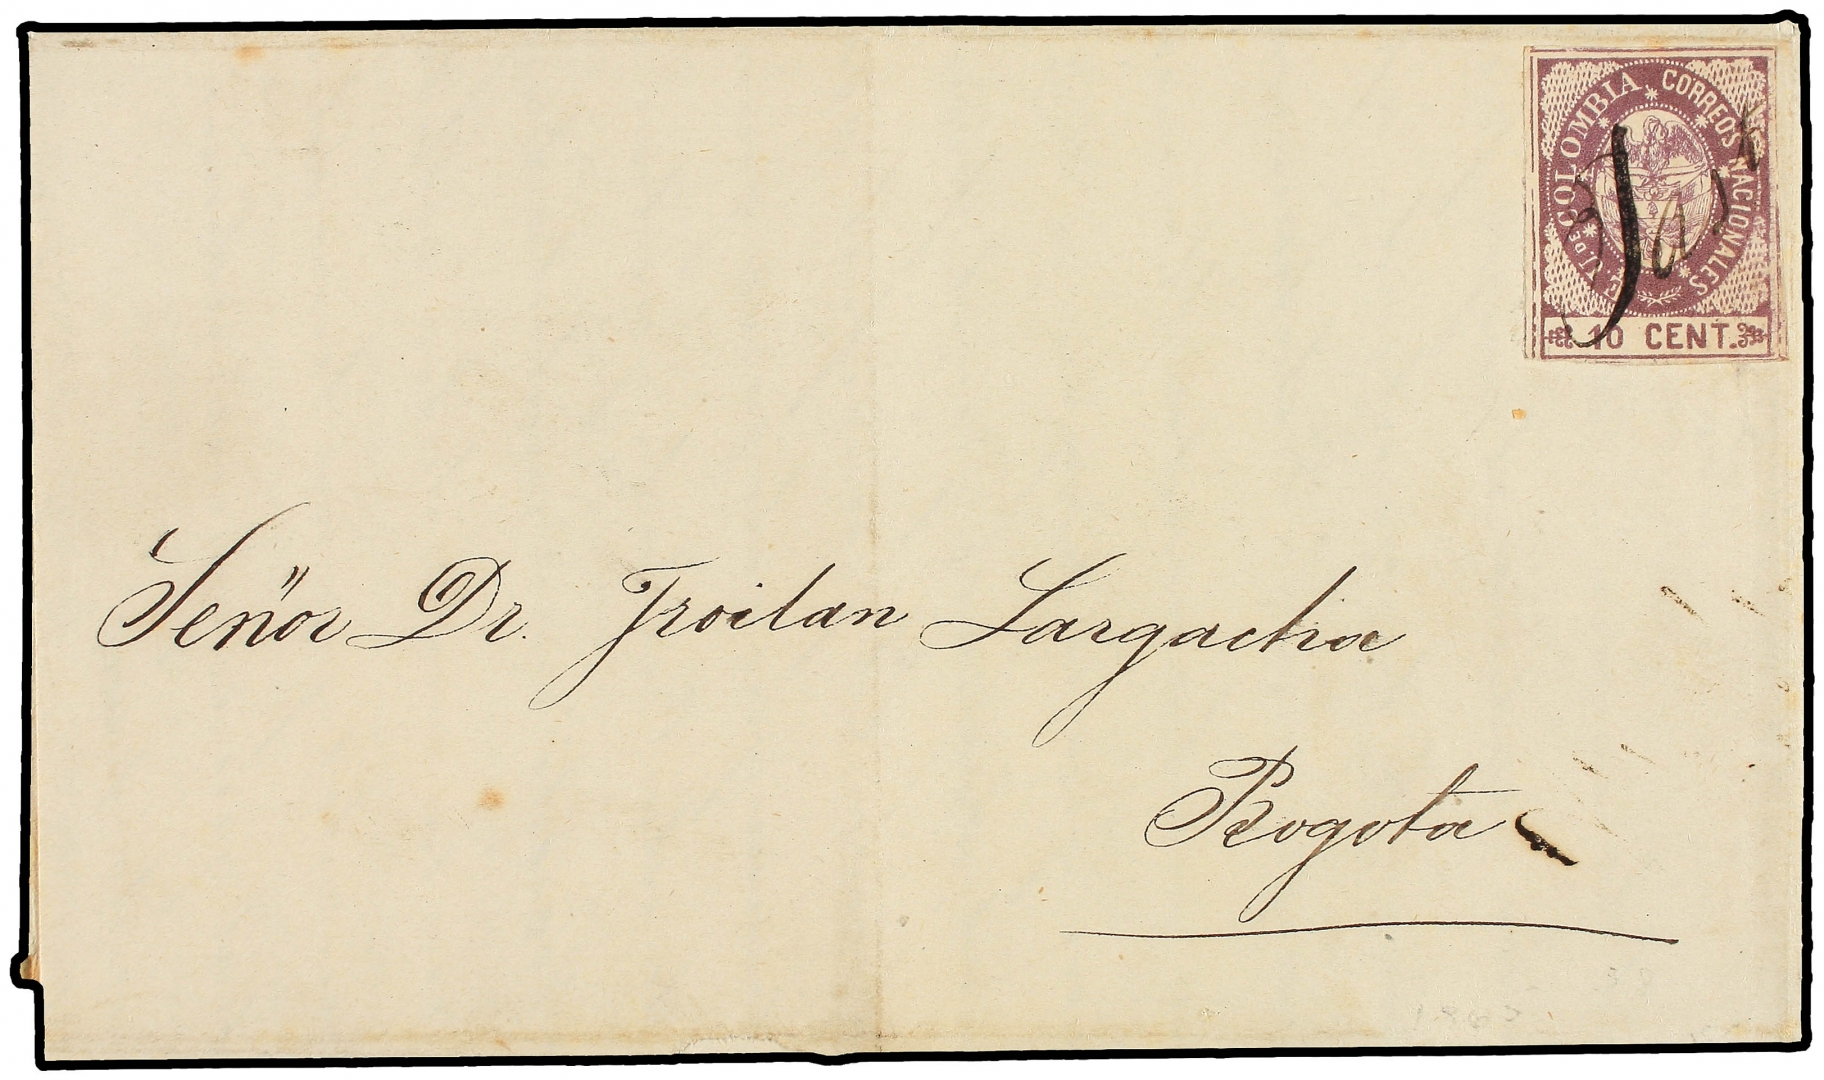 E. U. DE COLOMBIA * CORREOS NACIONALES
10 CENT.
Señor Dr. Froilan Largacha
Bogota